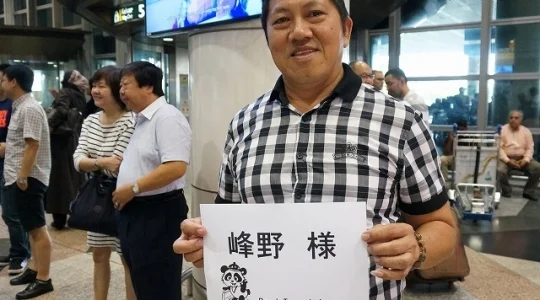 峰野 様